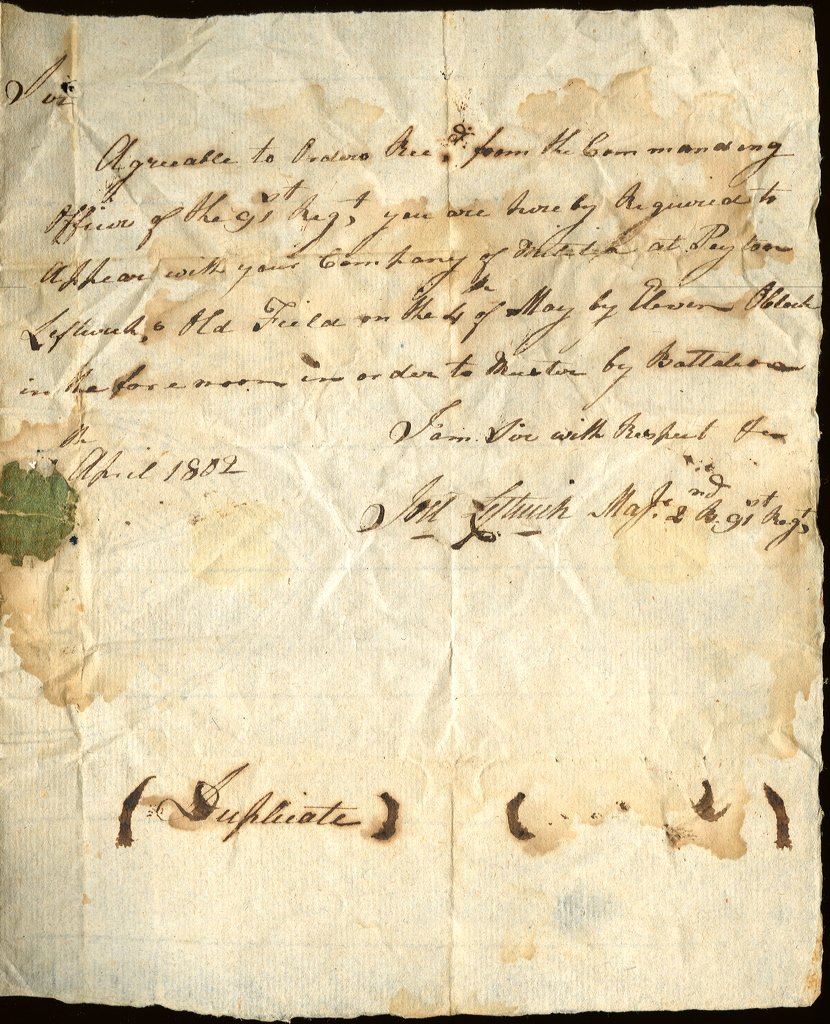 Sir
Agreeable to Orders Rec.d from the Commanding
Officer of the 91st Regt, you are hereby Required to
Appear with your Company of Militia at Peyton
Leftwich,s Old Field on the 4th of May by Eleven Oblock
in the forenoon in order to Muster by Battalion
I am Sir with Respect &c
th
April 1802
Joel Leftwich Maj.r 2nd B. 91st Regt,
(Duplicate) ( )